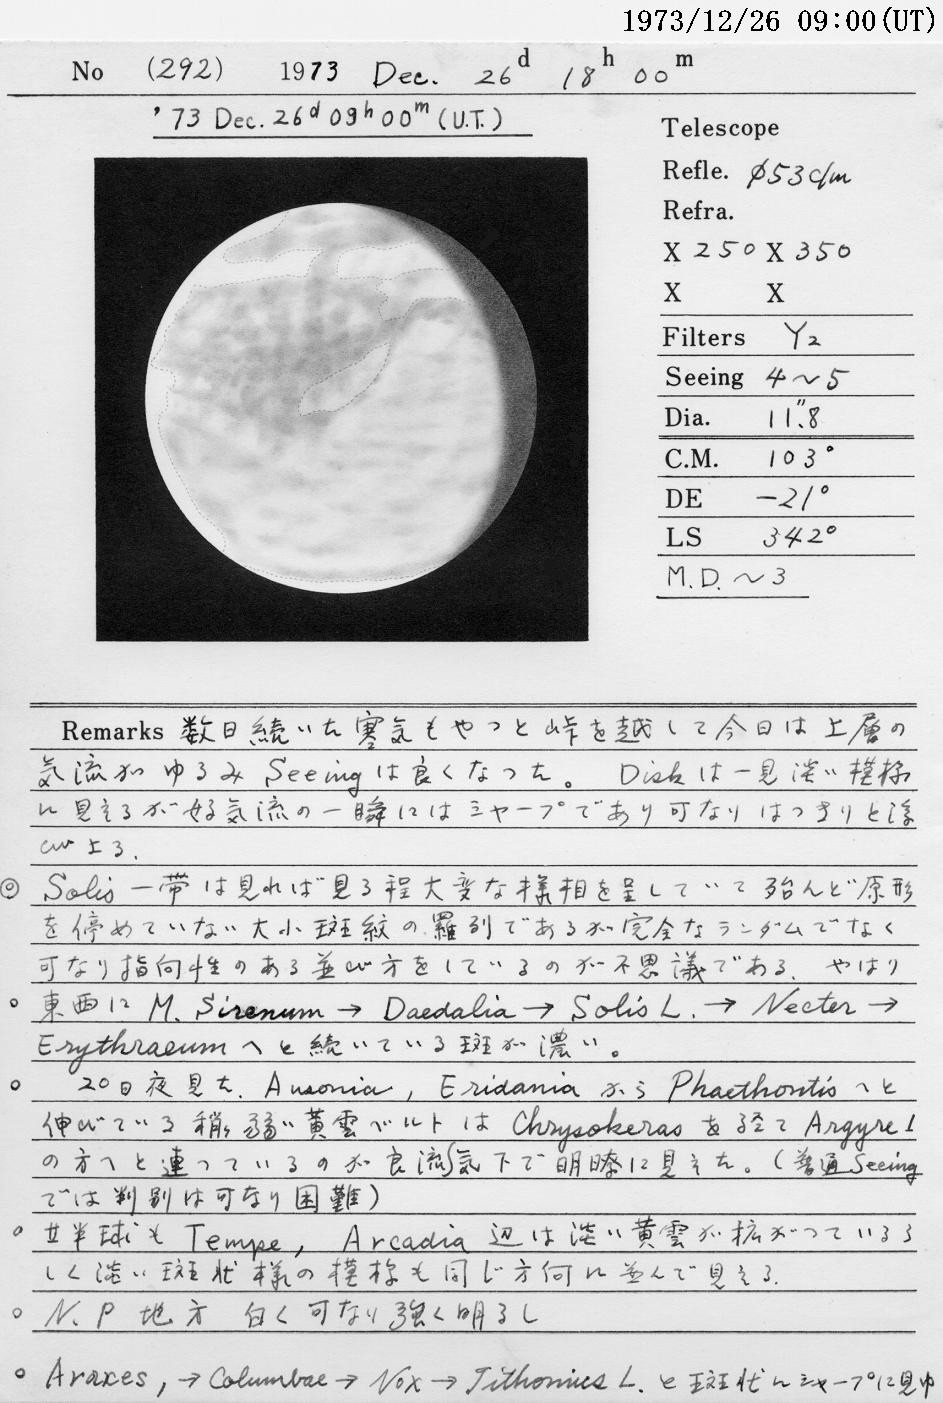 1973/12/26 09:00(UT)
No (292) 1973 Dec. 26d 18h 00m
'73 Dec. 26d 09h 00m (U.T.)
Telescope
Refle. φ53c/m
Refra.
X 250 X 350
X X
Filters Y2
Seeing 4～5
Dia. 11".8
C.M. 103°
DE -21°
LS 342°
M.D. ～3
Remarks 数日続いた寒気もやっと峠を越して今日は上層の
気流がゆるみ Seeing は良くなった。 Disk は一見淡い模様
に見えるが好気流の一瞬にはシャープであり可なりはっきりと浮
び上る.
◎ Solis 一帯は見れば見る程大変な様相を呈していて殆んど原形
を停めていない大小斑紋の羅列であるが完全なランダムでなく
可なり指向性のある並び方をしているのが不思議である. やはり
○ 東西に M. Sirenum → Daedalia → Solis L. → Necter →
Erythraeum へと続いている斑が濃い。
○ 20日夜見た. Ausonia, Eridania から Phaethontis へと
伸びている稍々弱い黄雲ベルトは Chrysokeras を経て Argyre I
の方へと連っているのが良流気下で明瞭に見えた。(普通 Seeing
では判別は可なり困難)
○ 北半球も Tempe, Arcadia 辺は淡い黄雲が拡がっているら
しく淡い斑状様の模様も同じ方向に並んで見える.
○ N.P 地方 白く可なり強く明るし
○ Araxes, → Columbae → Nox → Tithonius L. と斑状にシャープに見ゆ